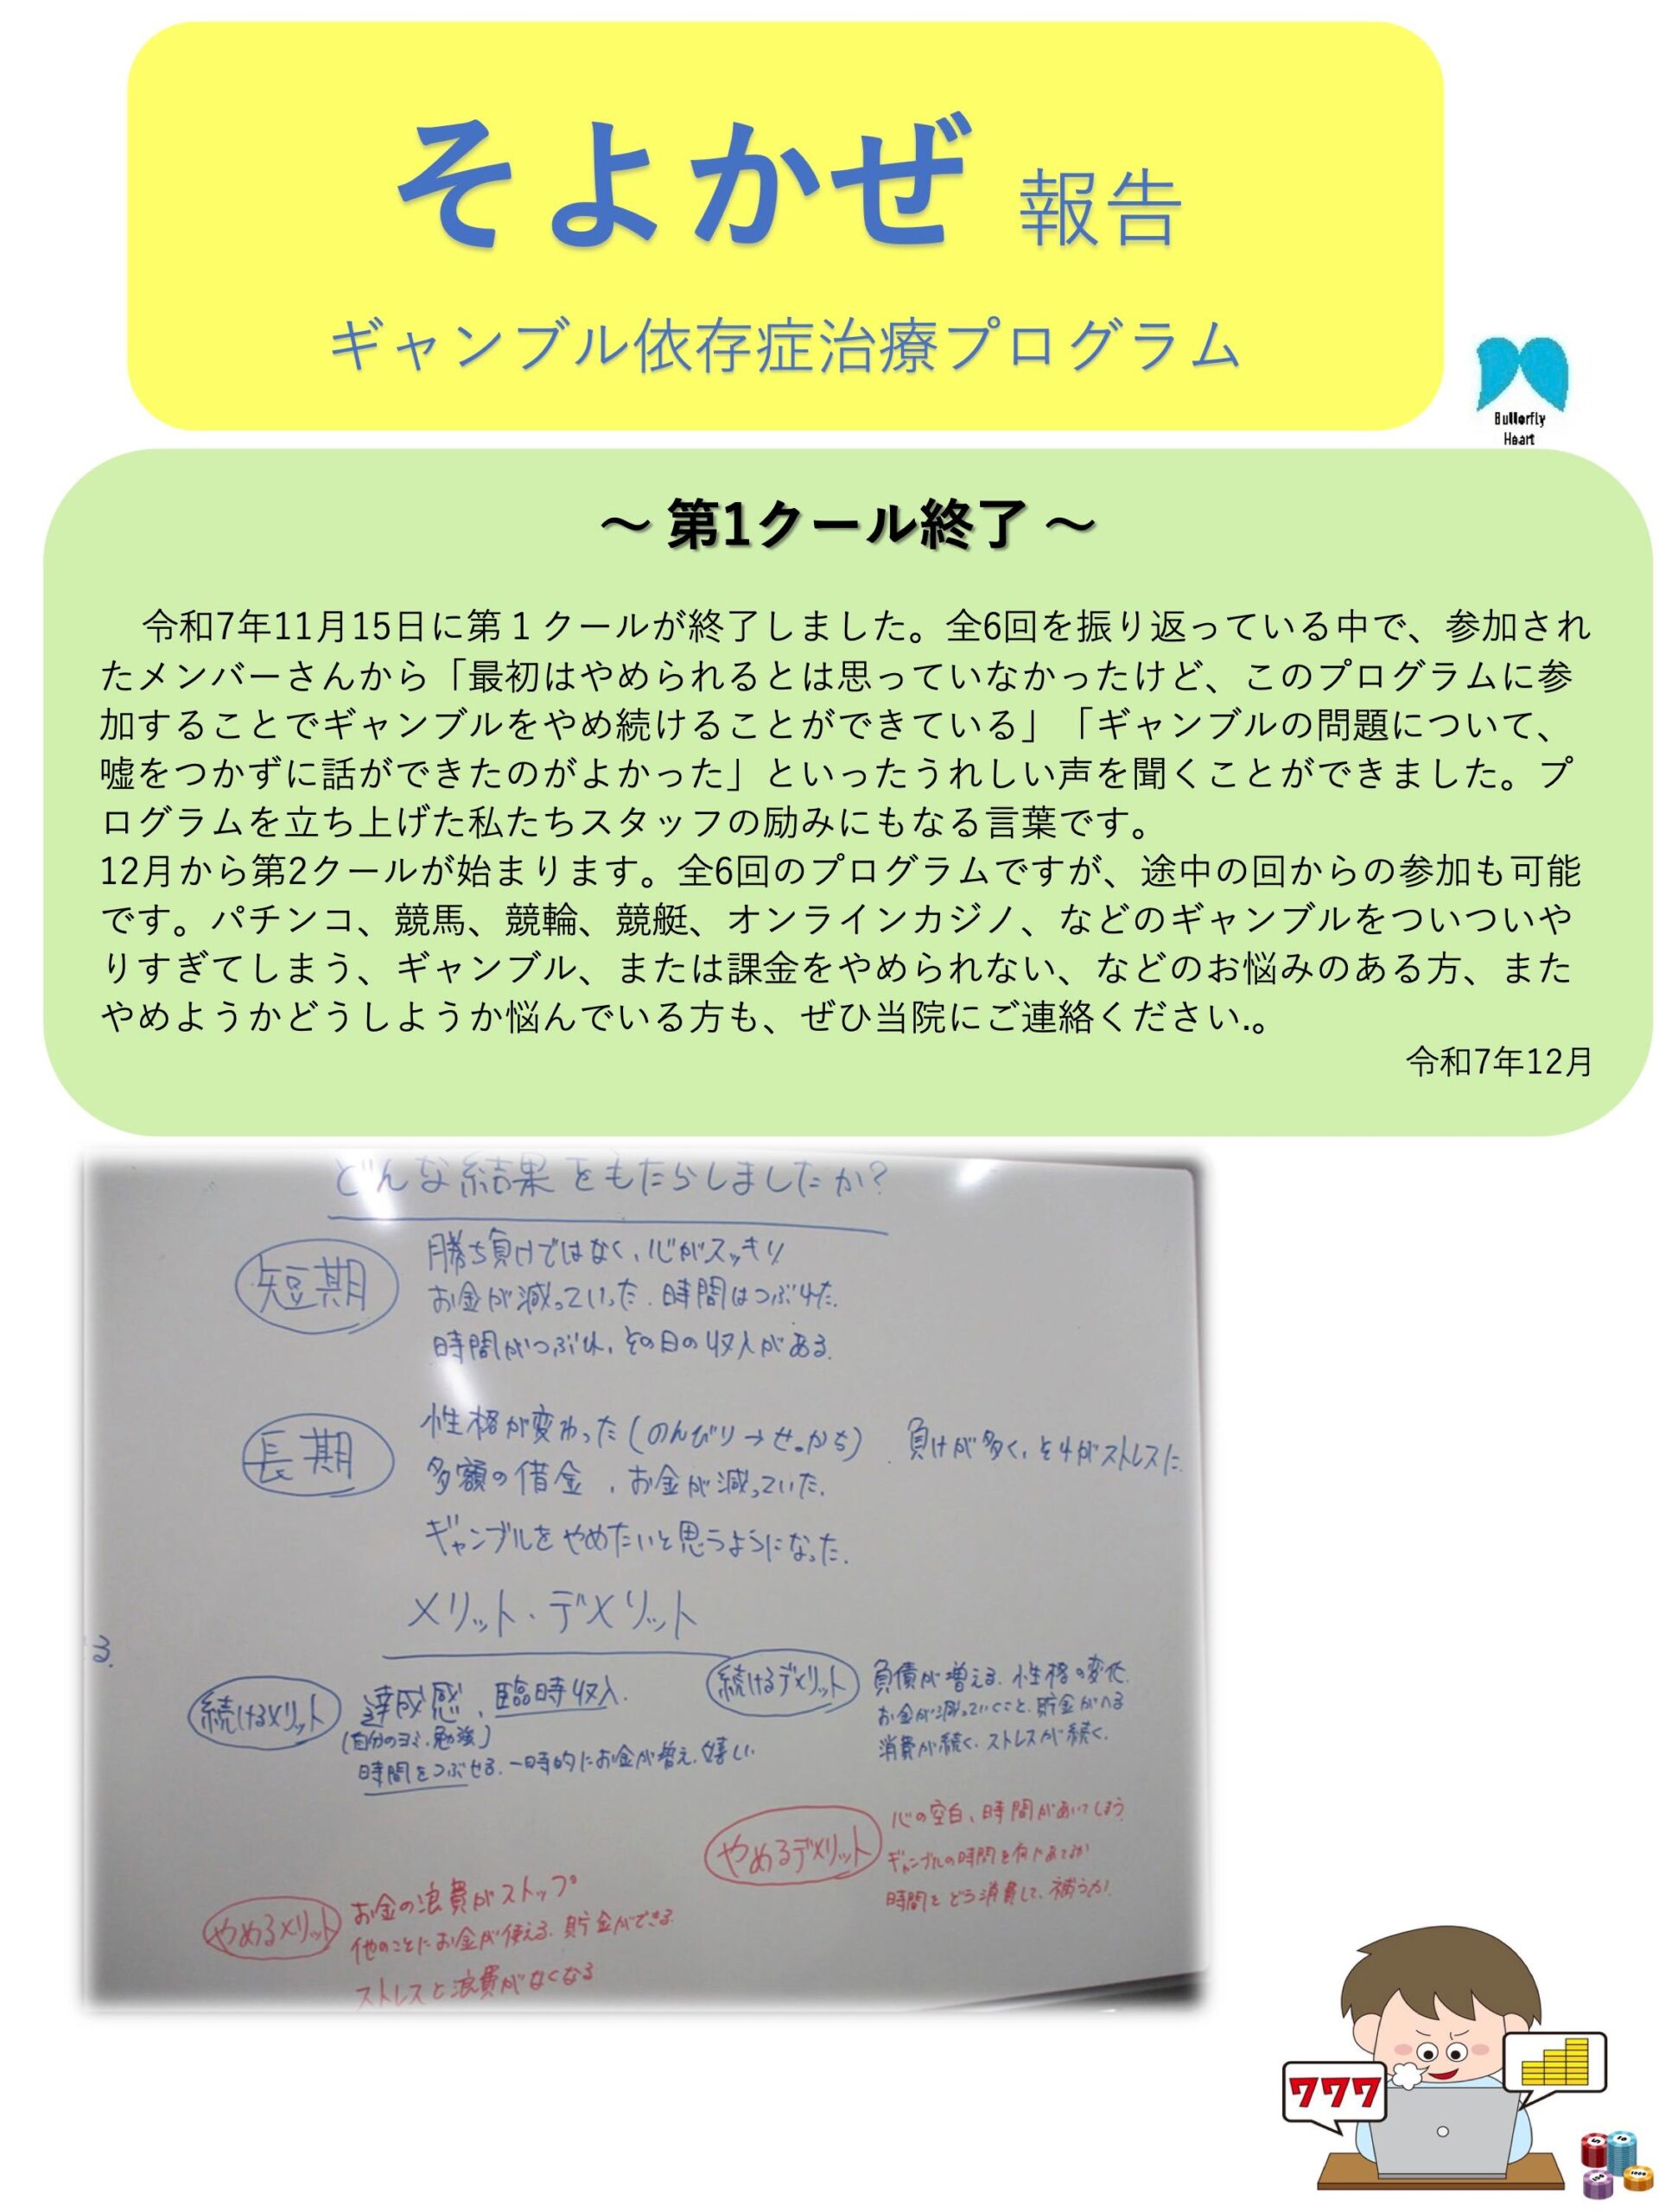 そよかぜ 報告
ギャンブル依存症治療プログラム
Butterfly
Heart
～ 第1クール終了 ～
令和7年11月15日に第１クールが終了しました。全6回を振り返っている中で、参加され
たメンバーさんから「最初はやめられるとは思っていなかったけど、このプログラムに参
加することでギャンブルをやめ続けることができている」「ギャンブルの問題について、
嘘をつかずに話ができたのがよかった」といったうれしい声を聞くことができました。プ
ログラムを立ち上げた私たちスタッフの励みにもなる言葉です。
12月から第2クールが始まります。全6回のプログラムですが、途中の回からの参加も可能
です。パチンコ、競馬、競輪、競艇、オンラインカジノ、などのギャンブルをついついや
りすぎてしまう、ギャンブル、または課金をやめられない、などのお悩みのある方、また
やめようかどうしようか悩んでいる方も、ぜひ当院にご連絡ください.。
令和7年12月
どんな結果をもたらしましたか?
短期
勝ち負けではなく、心がスッキリ
お金が減っていった. 時間はつぶれた.
時間がつぶれ、その日の収入がある.
長期
性格が変わった(のんびり→せっかち) . 負けが多く、それがストレスに.
多額の借金 . お金が減っていた.
ギャンブルをやめたいと思うようになった.
メリット・デメリット
る.
続けるメリット
達成感、臨時収入.
(自分のヨミ、勉強)
時間をつぶせる. 一時的にお金が増え、嬉しい
続けるデメリット
負債が増える. 性格の変化.
お金が減っていくこと、貯金がへる
消費が続く、ストレスが続く.
やめるデメリット
心の空白、時間があいてしまう
ギャンブルの時間を何にあてるか
時間をどう消費して、補うか.
やめるメリット
お金の浪費がストップ
他のことにお金が使える. 貯金ができる
ストレスと浪費がなくなる
777